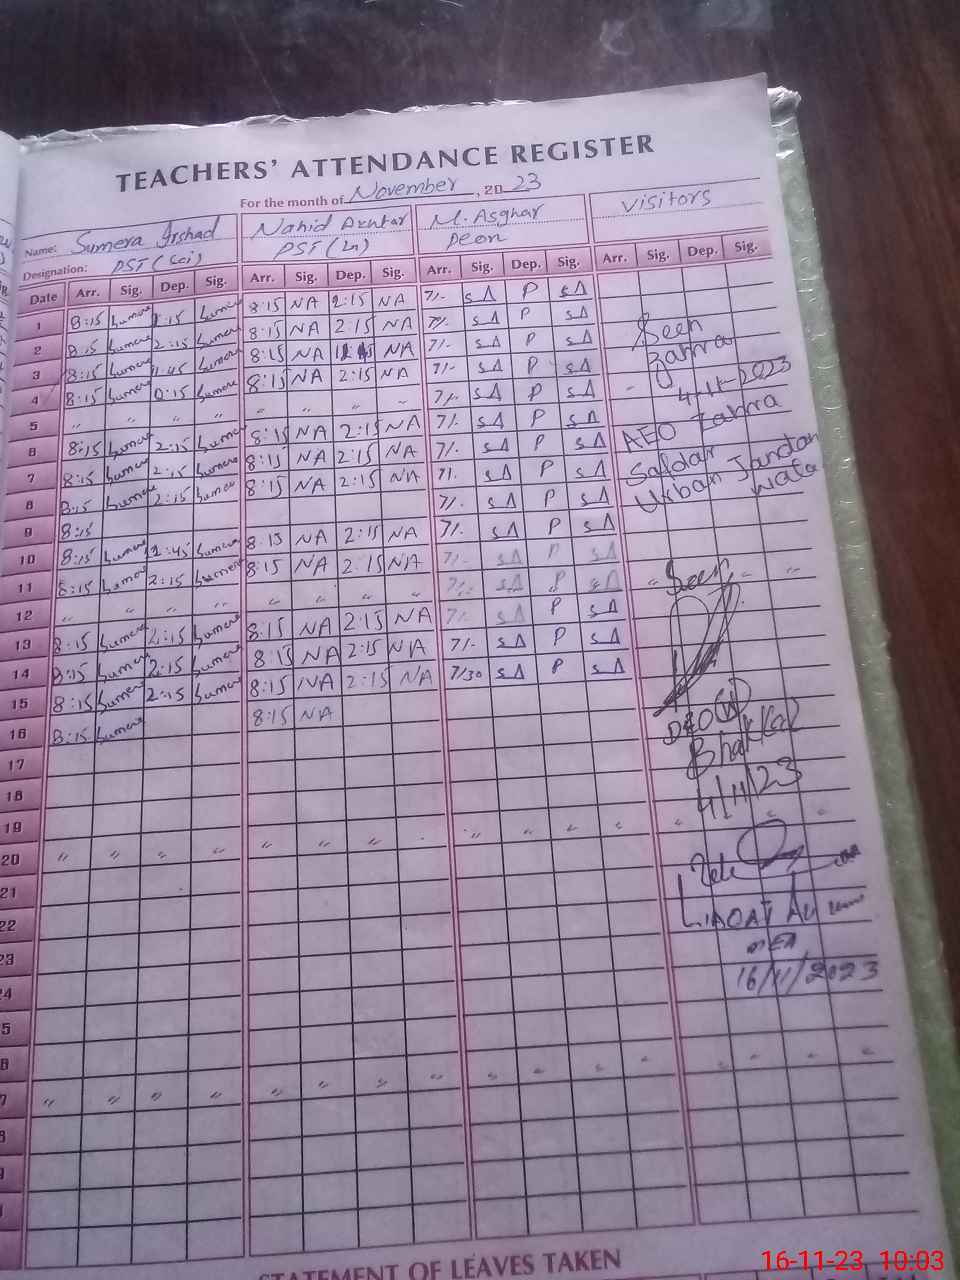 TEACHERS' ATTENDANCE REGISTER
For the month of November, 2023
Name: Sumera Irshad Nahid Akhtar M. Asghar visitors
Designation: PST (Sci) PST (Ln) Peon
Date Arr. Sig. Dep. Sig. Arr. Sig. Dep. Sig. Arr. Sig. Dep. Sig. Arr. Sig. Dep. Sig.
1 8:15 Sumera 2:15 Sumera 8:15 NA 2:15 NA 7/- SA P SA
2 8:15 Sumera 2:15 Sumera 8:15 NA 2:15 NA 7/- SA P SA
3 8:15 Sumera Sumera 8:15 NA NA 7/- SA P SA
4 8:15 Sumera 2:15 Sumera 8:15 NA 2:15 NA 7/- SA P SA
5 " " " " " " " " 7/- SA P SA
6 8:15 Sumera 2:15 Sumera 8:15 NA 2:15 NA 7/- SA P SA
7 8:15 Sumera 2:15 Sumera 8:15 NA 2:15 NA 7/- SA P SA
8 8:15 Sumera 2:15 Sumera 8:15 NA 2:15 NA 7/- SA P SA
9 8:15 7/- SA P SA
10 8:15 Sumera Sumera 8:15 NA 2:15 NA 7/- SA P SA
11 8:15 Sumera 2:15 Sumera 8:15 NA 2:15 NA 7/- SA P SA
12 " " " " " " " " 7/- SA P SA
13 8:15 Sumera 2:15 Sumera 8:15 NA 2:15 NA 7/- SA P SA
14 8:15 Sumera 2:15 Sumera 8:15 NA 2:15 NA 7/- SA P SA
15 8:15 Sumera 2:15 Sumera 8:15 NA 2:15 NA 7/30 SA P SA
16 8:15 Sumera 8:15 NA
17
18
19
20 " " " " " " " " " " " "
21
22
23
24
5
6
7 " " " " " " " " " " " "
8
9
Seen
Zahra
4-11-2023
AEO Zahra
Safdar
Urban Jandan
wala
Seen
DEO (W)
Bhakkar
4/11/23
LIAQAT Ali
MEA
16/11/2023
STATEMENT OF LEAVES TAKEN
16-11-23 10:03